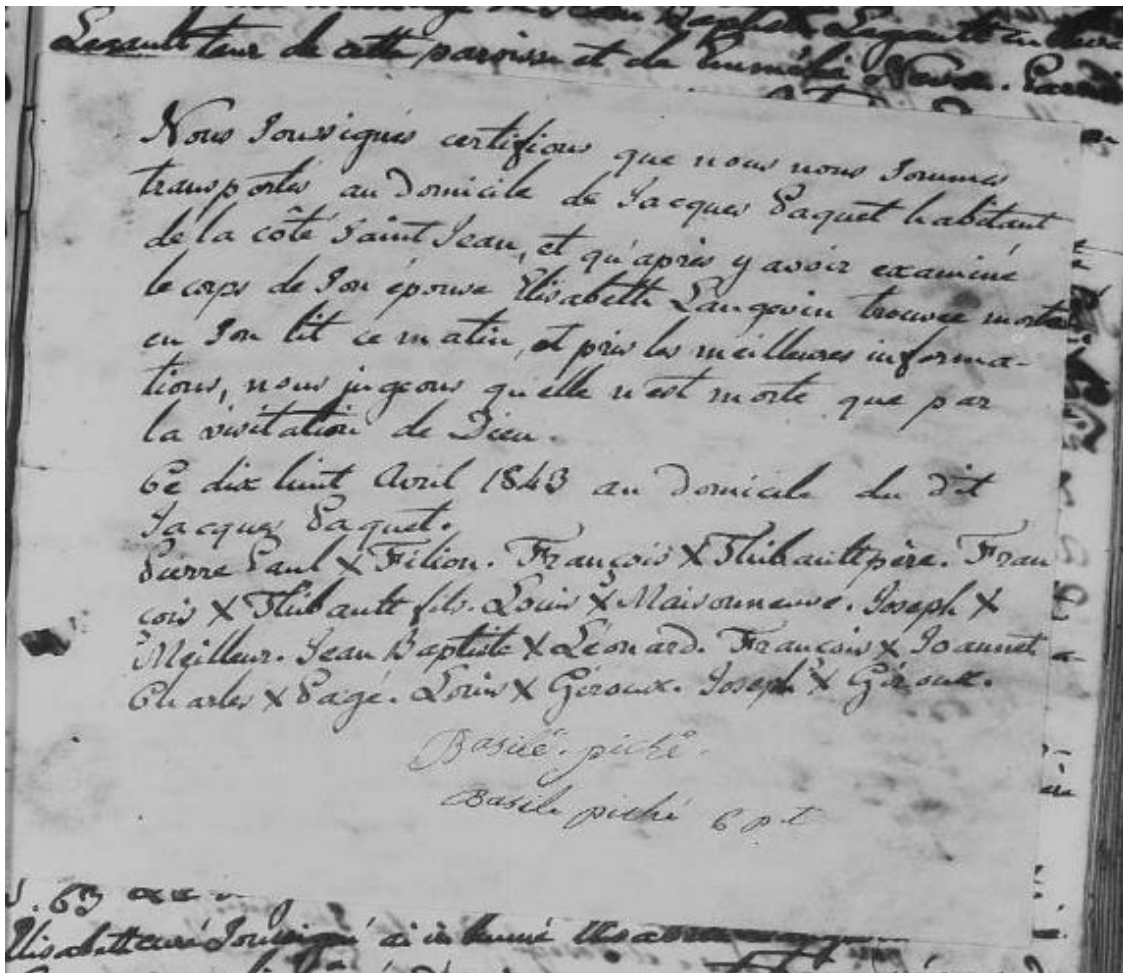 Baptiste Legault
Legault teur de cette paroisse et de
Nous Soussignés certifions que nous nous Sommes
transportés au Domicile de Jacques Paquet habitant
de la côte Saint Jean, et qu'après y avoir examiné
le corps de Son épouse Elisabeth Langevin trouvée morte
en Son lit ce matin, et pris les meilleures informa-
tions, nous jugeons qu'elle n'est morte que par
la visitation de Dieu.
Ce dix huit Avril 1843 au Domicile du dit
Jacques Paquet.
Pierre Paul X Filion. François X Thibault père. Fran
çois X Thibault fils. Louis X Maisonneuve. Joseph X
Meilleur. Jean Baptiste X Léonard. François X Joannet
Charles X Pagé. Louis X Géroux. Joseph X Géroux.
Basile piché.
Basile piché Cpt
Elisabeth Soussigné ai inhumé